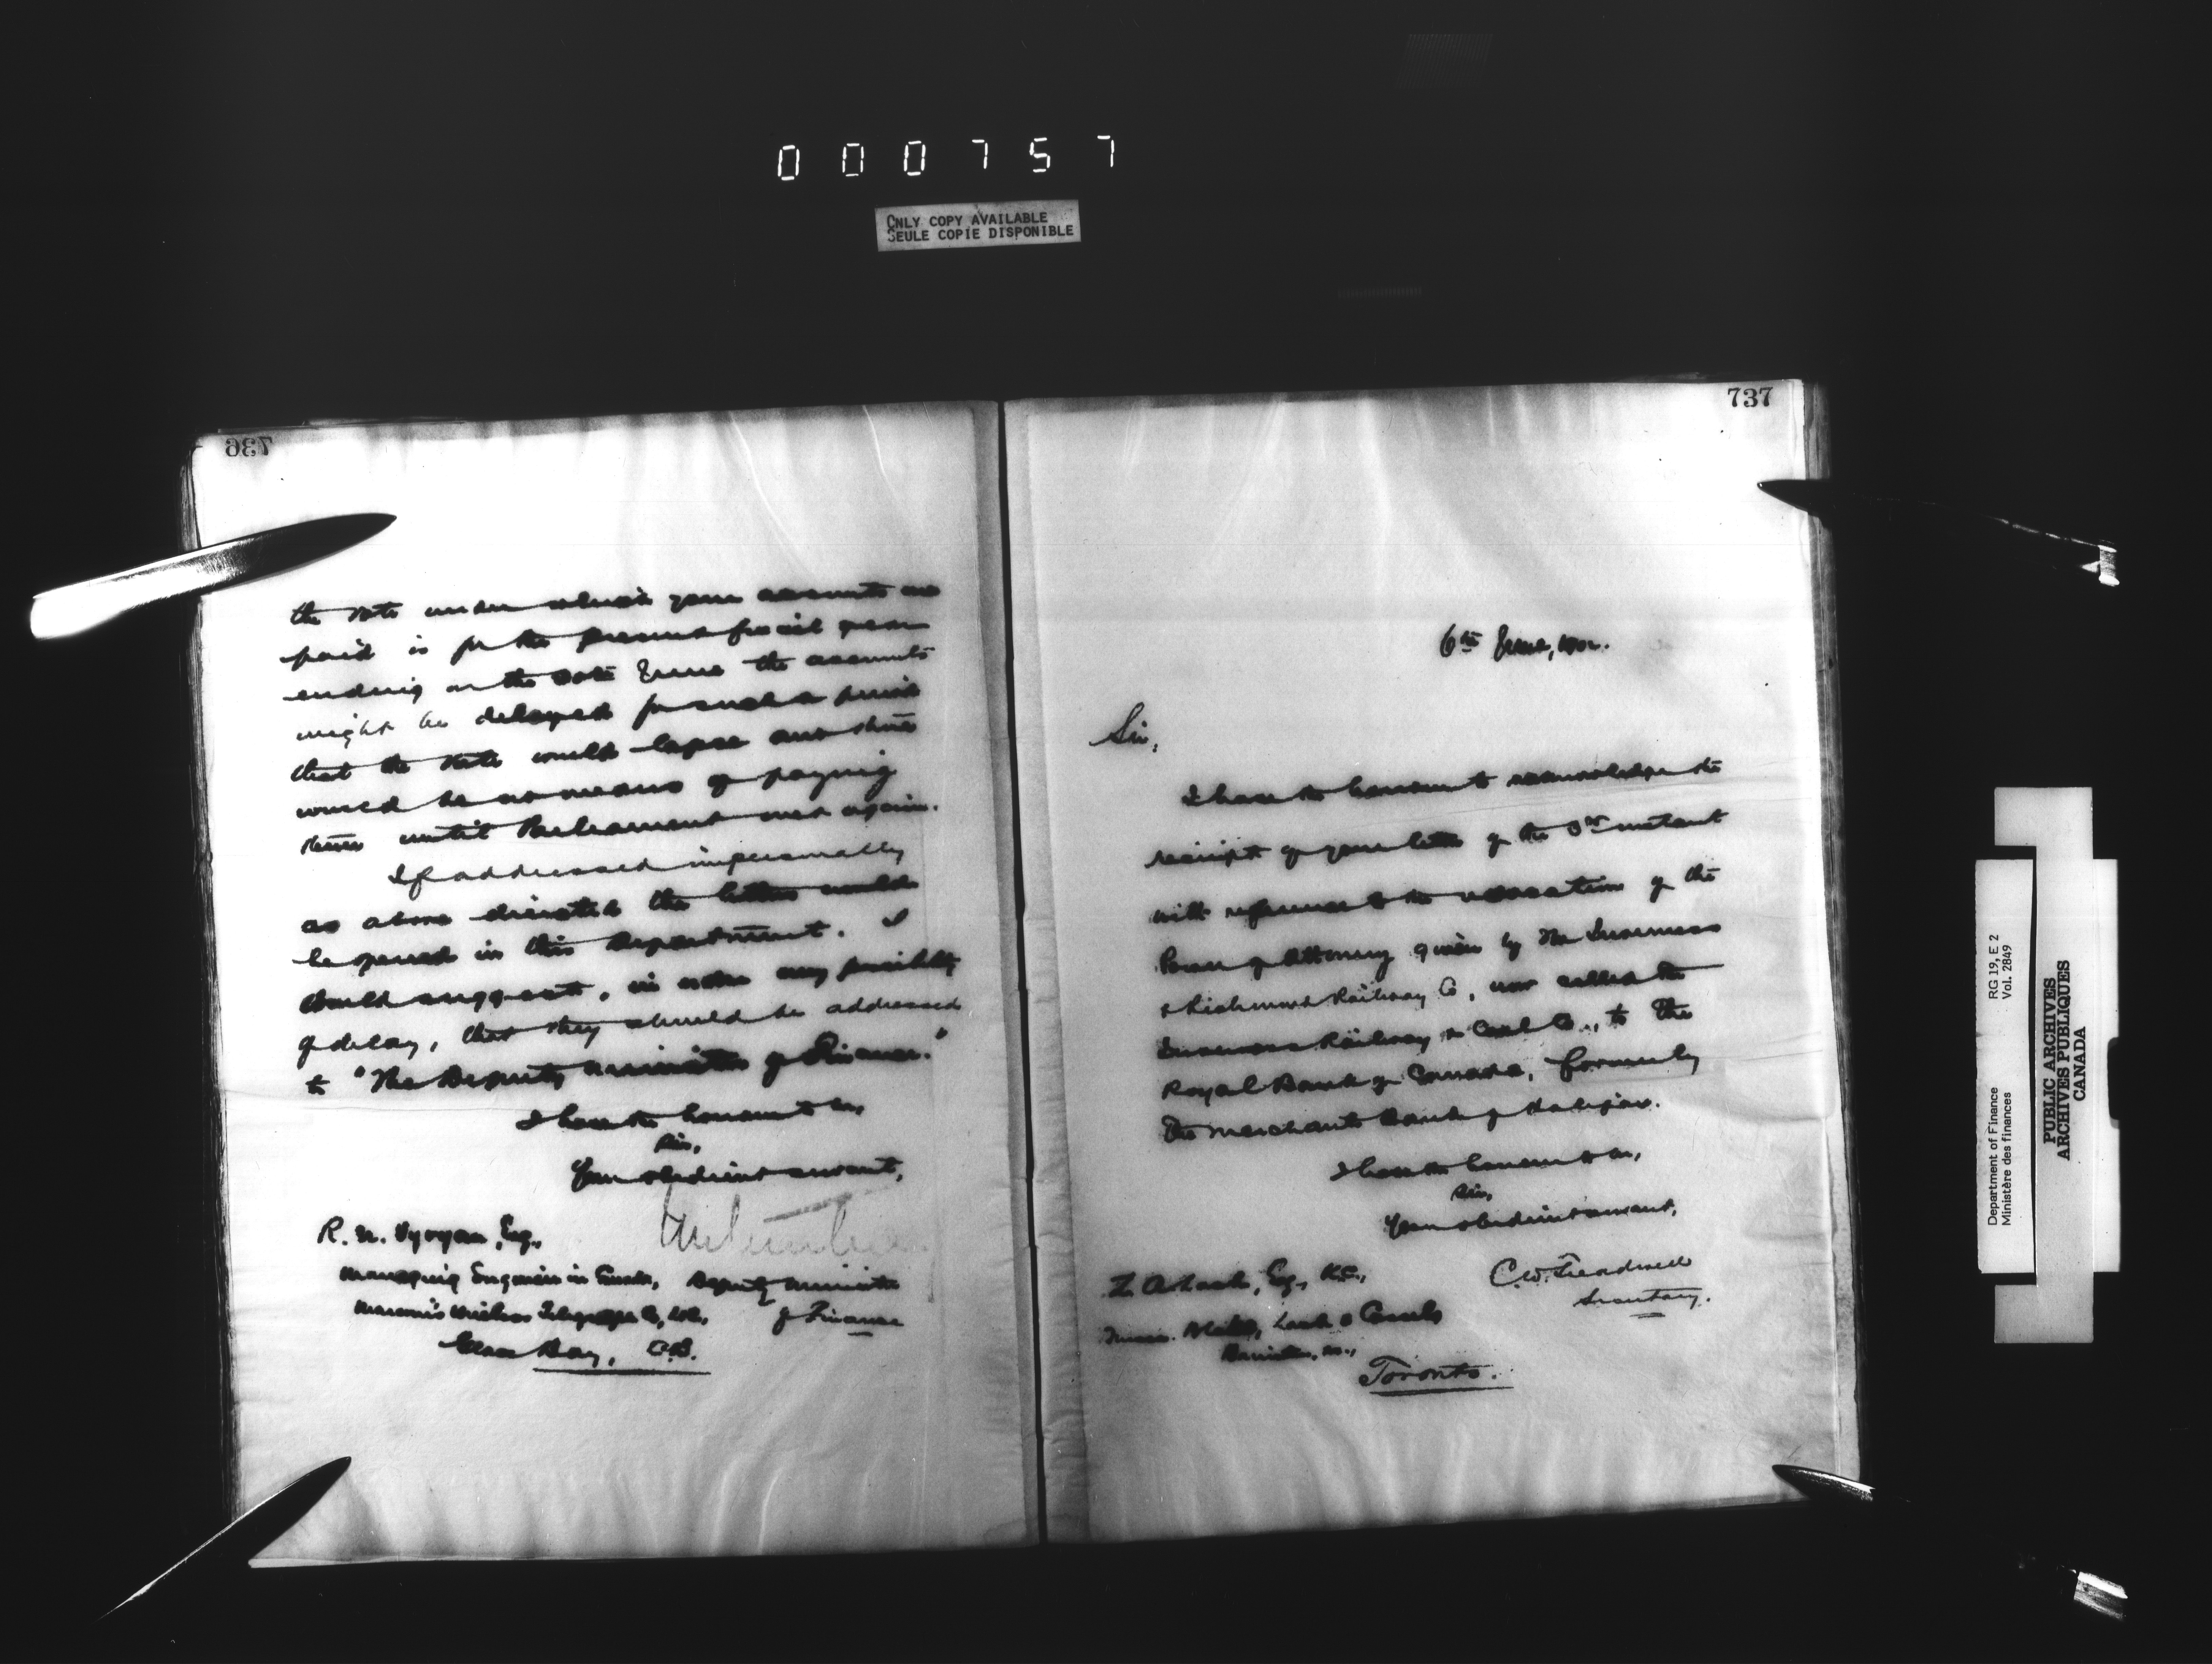 000757
ONLY COPY AVAILABLE
SEULE COPIE DISPONIBLE
736
the vote under which your accounts are
paid is for the present fiscal year
ending on the 30th June the accounts
might be delayed for such a period
that the vote would lapse and there
would be no means of paying
them until Parliament met again.
If addressed impersonally
as above directed the letters would
be opened in this Department. I
would suggest, in order any possibility
of delay, that they should be addressed
to "The Deputy Minister of Finance."
I have the honour to be,
Sir,
Your obedient servant,
R. N. Vyvyan, Esq.,
Managing Engineer in Canada, Deputy Minister
Marconi's Wireless Telegraph Co, Ltd., of Finance
Glace Bay, C.B.
737
6th June, 1902.
Sir,
I have the honour to acknowledge the
receipt of your letter of the 3rd instant
with reference to the revocation of the
Power of Attorney given by The Inverness
& Richmond Railway Co, now called the
Inverness Railway & Coal Co., to the
Royal Bank of Canada, formerly
The Merchants Bank of Halifax.
I have the honour to be,
Sir,
Your obedient servant,
C. W. Treadwell
Secretary.
Z. A. Lash, Esq., K.C.,
Messrs. Blake, Lash & Cassels
Barristers, &c.,
Toronto.
Department of Finance RG 19, E 2
Ministère des finances Vol. 2849
PUBLIC ARCHIVES
ARCHIVES PUBLIQUES
CANADA